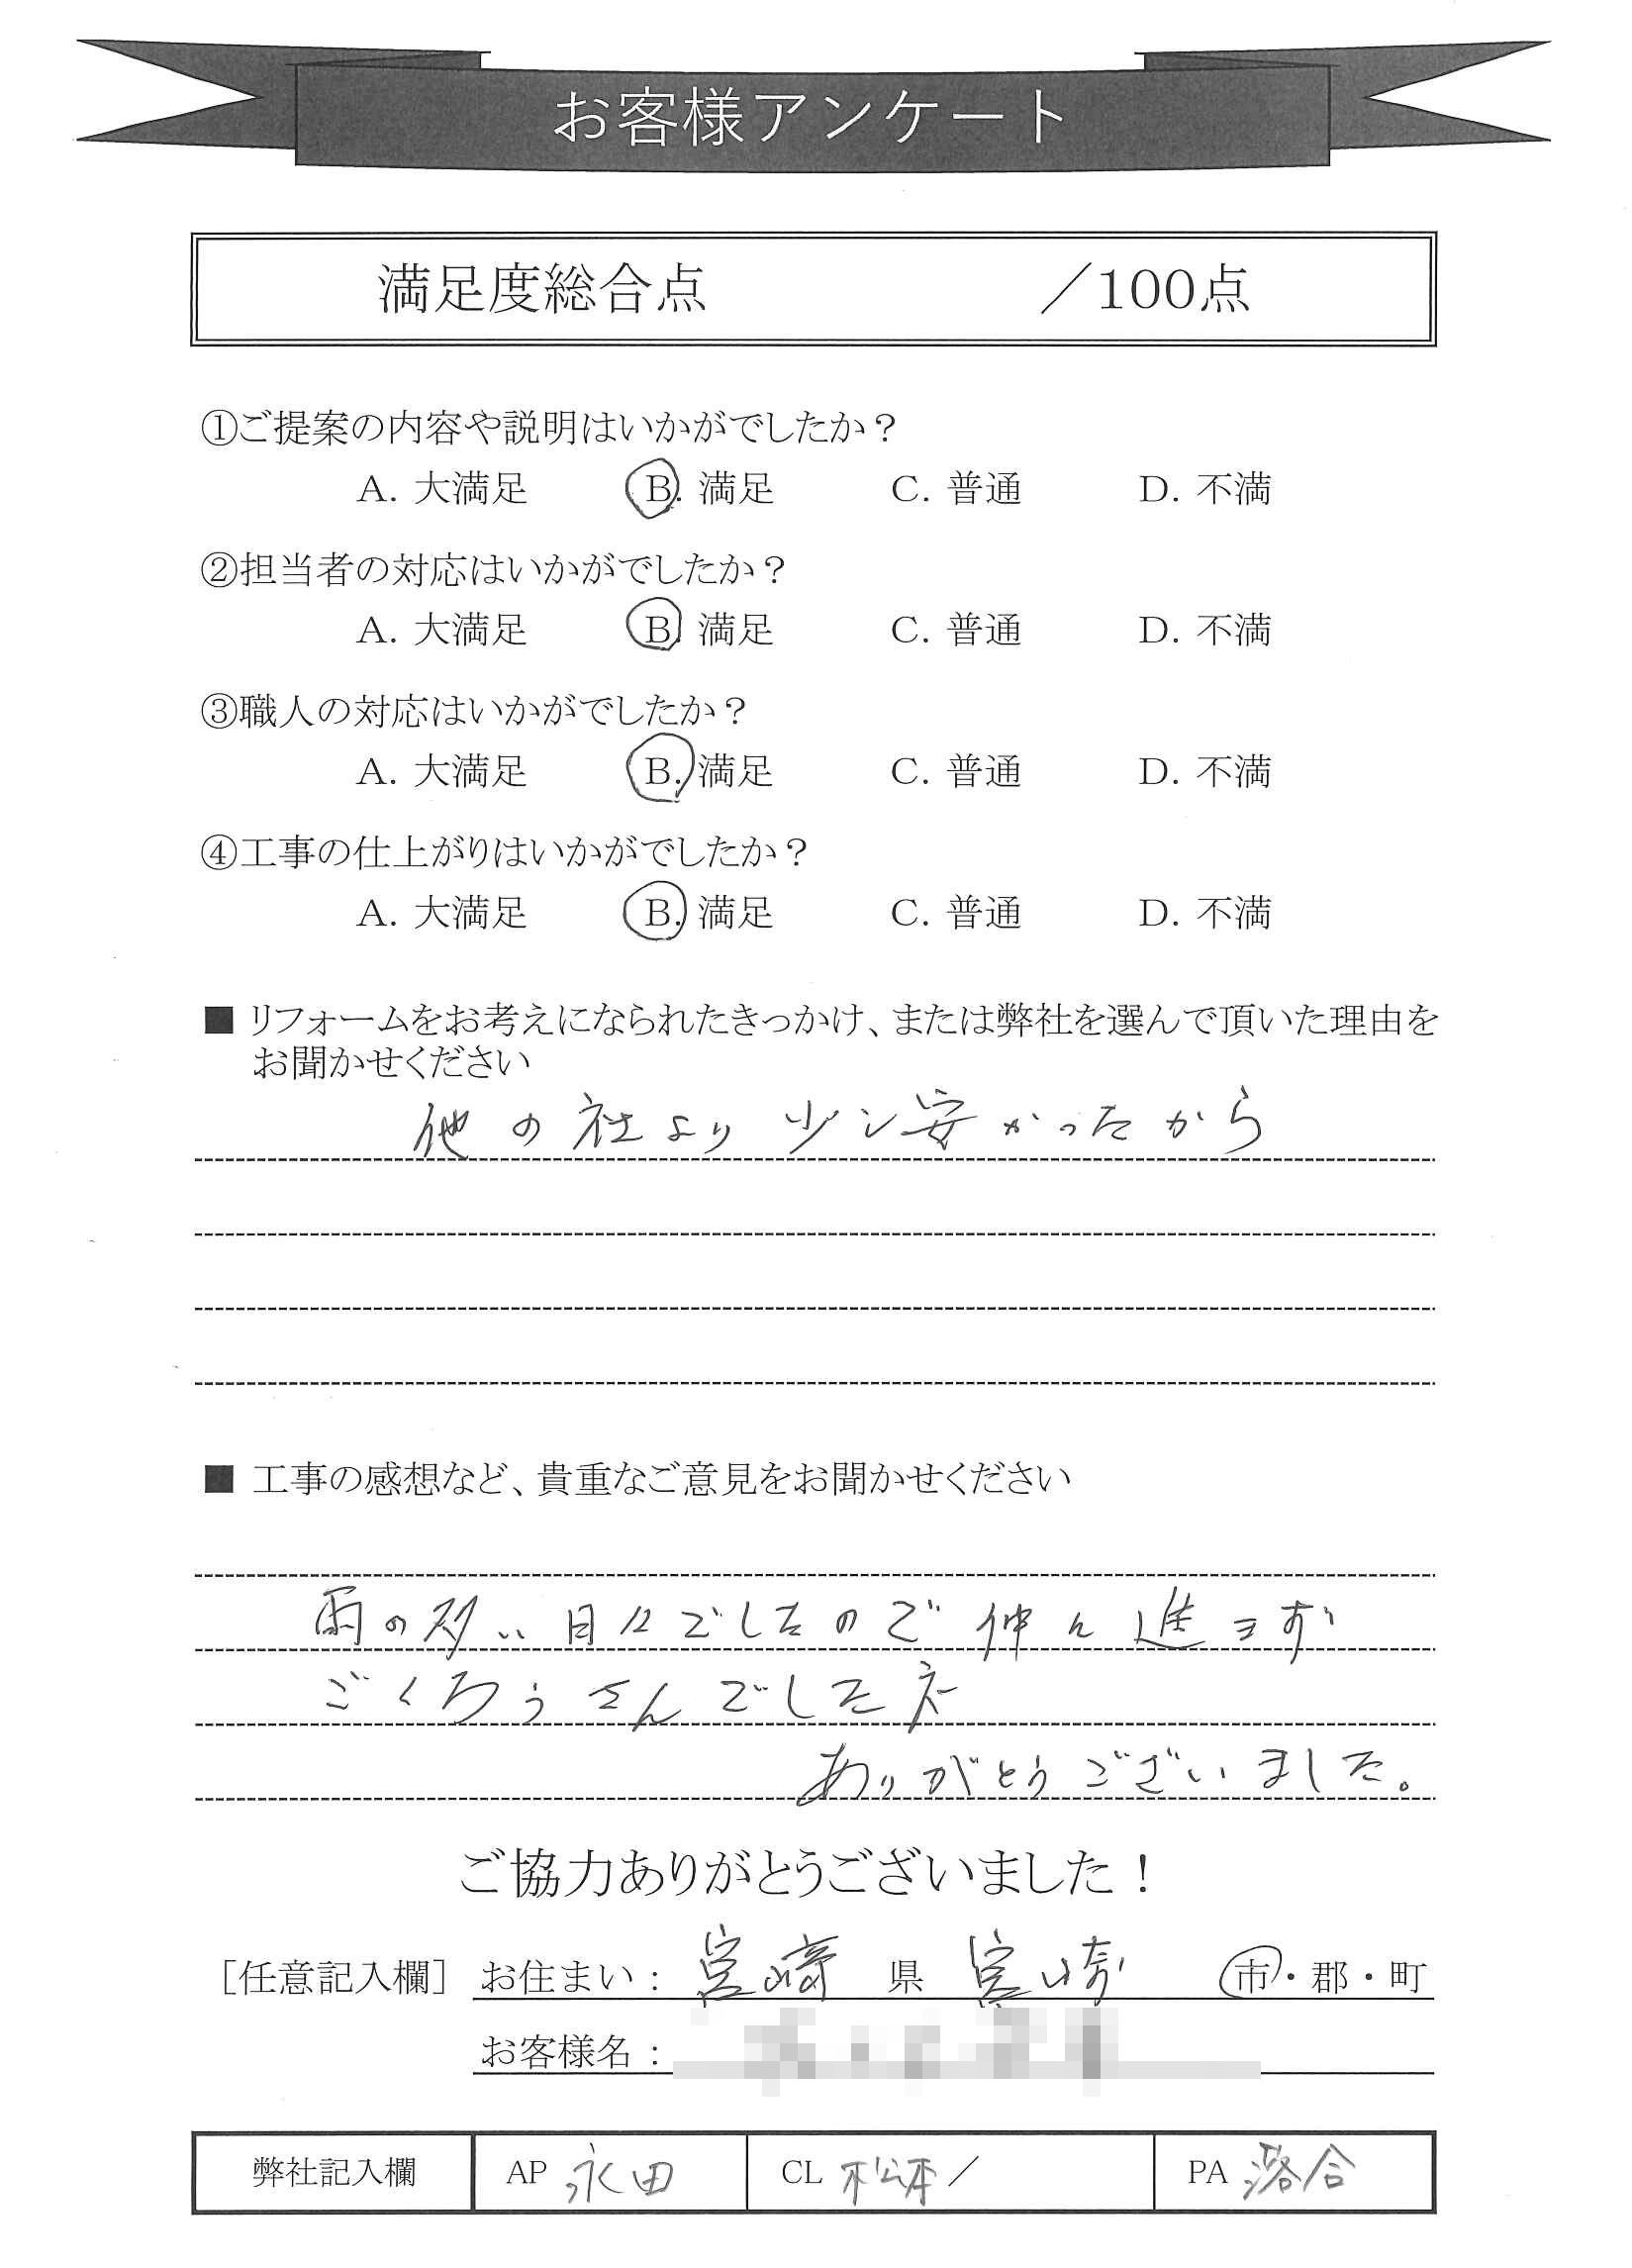 お客様アンケート
満足度総合点 ／100点
①ご提案の内容や説明はいかがでしたか？
A. 大満足 B. 満足 C. 普通 D. 不満
②担当者の対応はいかがでしたか？
A. 大満足 B. 満足 C. 普通 D. 不満
③職人の対応はいかがでしたか？
A. 大満足 B. 満足 C. 普通 D. 不満
④工事の仕上がりはいかがでしたか？
A. 大満足 B. 満足 C. 普通 D. 不満
■ リフォームをお考えになられたきっかけ、または弊社を選んで頂いた理由を
お聞かせください
他の社より少し安かったから
■ 工事の感想など、貴重なご意見をお聞かせください
雨の多い日々でしたので仲々進まず
ごくろうさんでしたネ
ありがとうございました。
ご協力ありがとうございました！
［任意記入欄］ お住まい： 宮崎 県 宮崎 市・郡・町
お客様名：
弊社記入欄 AP 永田 CL 松本／ PA 落合